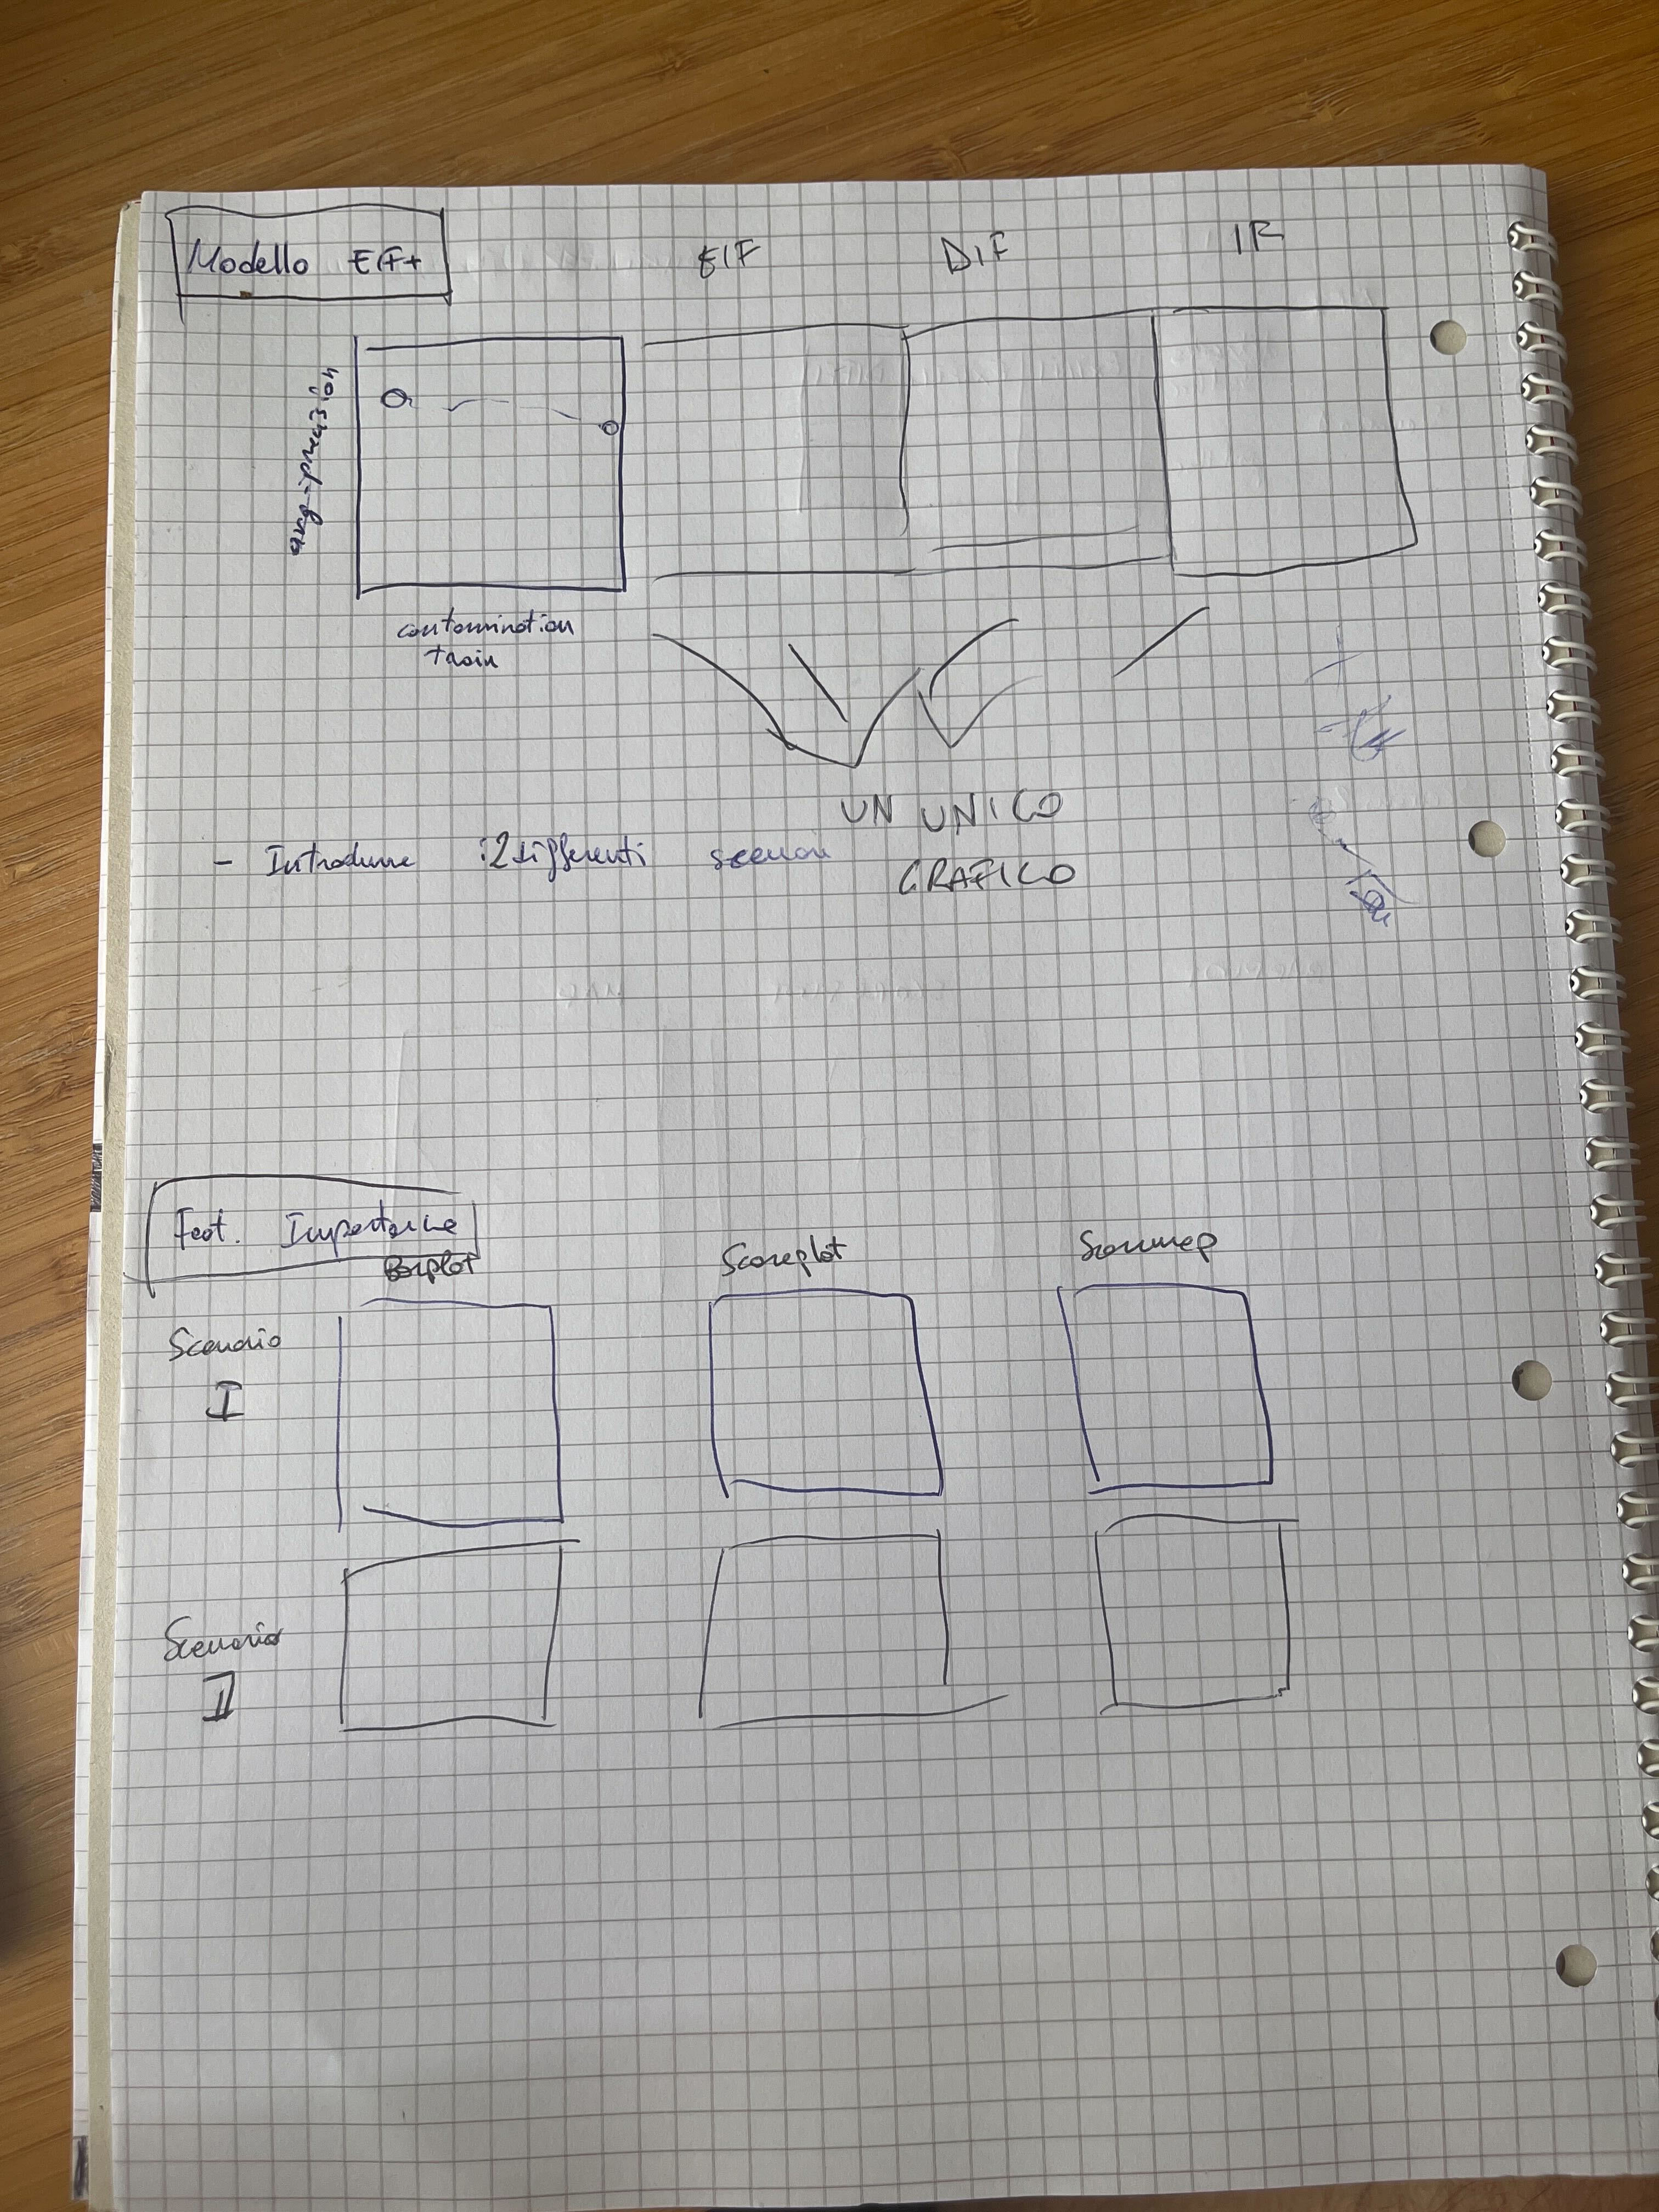 Modello EIF+
EIF
DIF
IF
avg-precision
contamination
train
UN UNICO
GRAFICO
- Introdurre i 2 differenti scenari
Feat. Importance
Barplot
Scoreplot
Scenario
I
Scenario
II